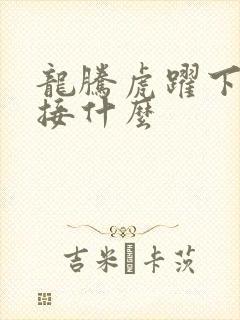 龍騰虎躍下
接什麼
吉米·卡茨